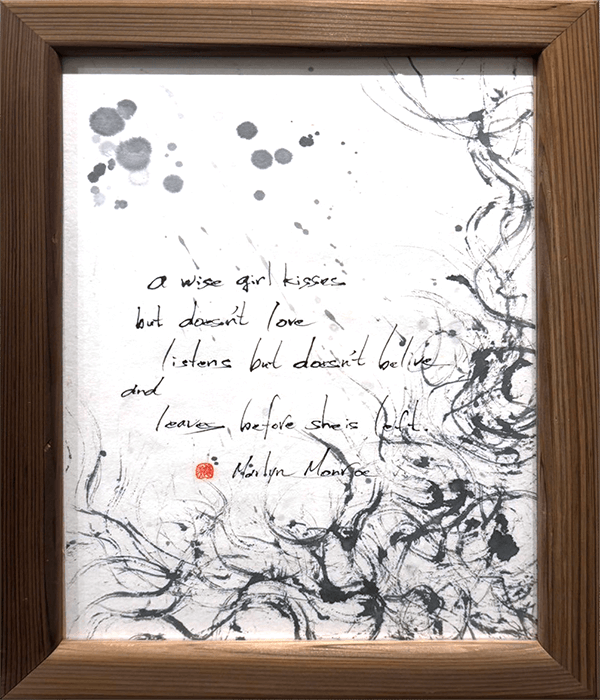 a wise girl kisses
but doesn't love
listens but doesn't belive
and
leaves before she is left.
Marilyn Monroe